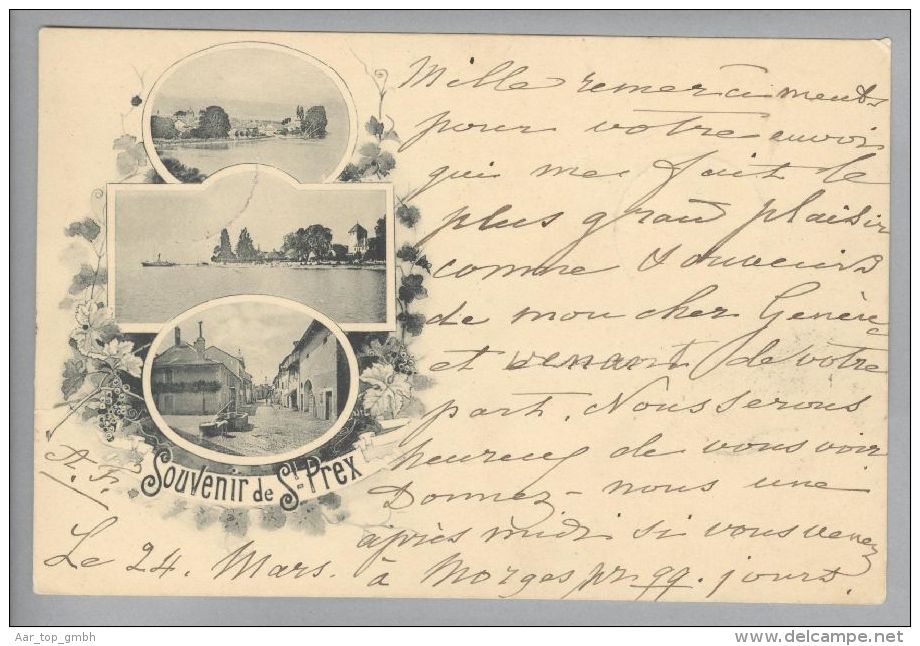 Mille remerciments
pour votre envoi
qui me fait le
plus grand plaisir
comme souvenir
de mon cher Genève
et venant de votre
part. Nous serons
heureux de vous voir
Donnez-nous une
après midi si vous venez
à Morges pr qq. jours.
Souvenir de St. Prex
A. F.
Le 24. Mars.
Aar_top_gmbh
www.delcampe.net